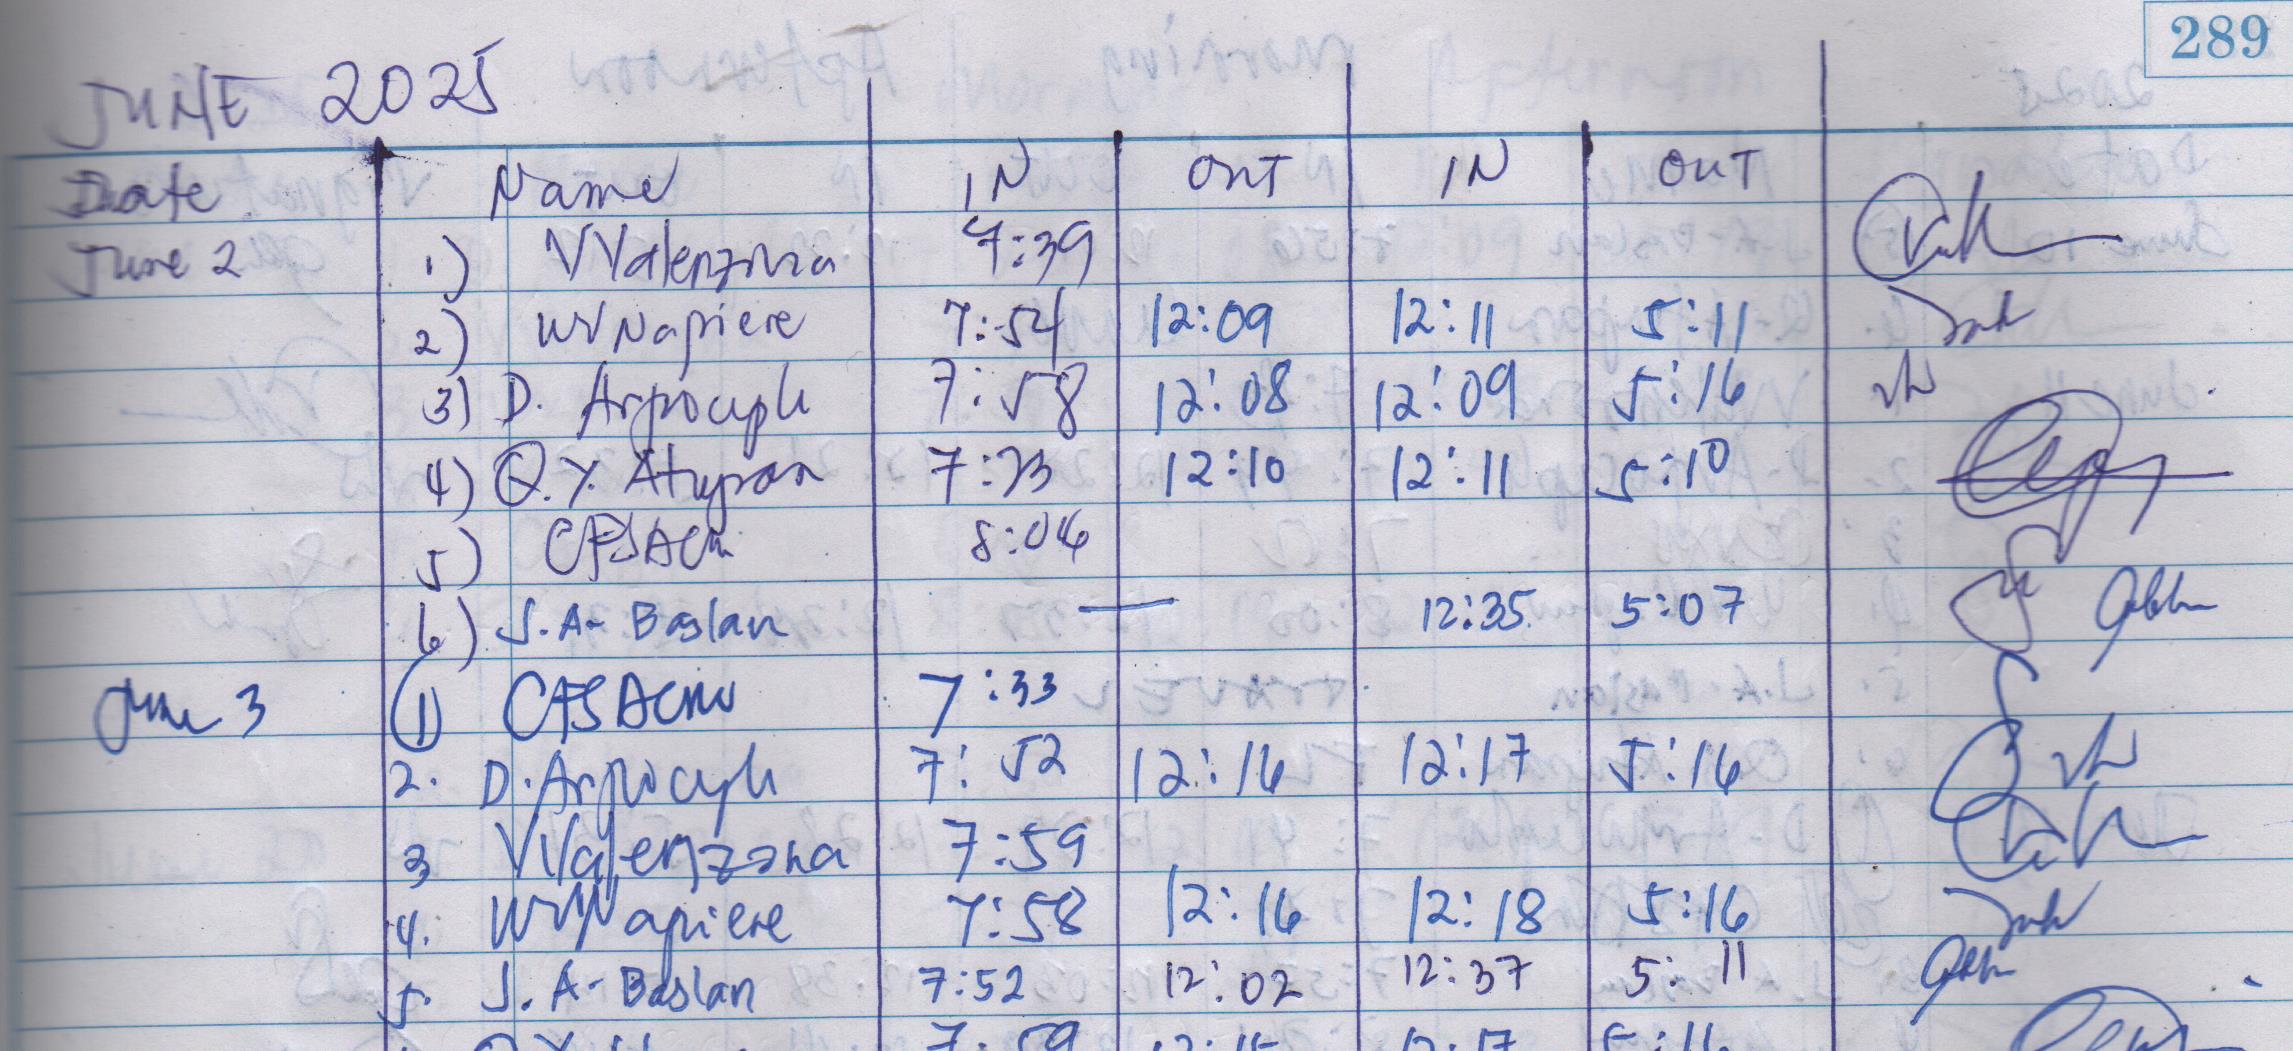 289
JUNE 2025
Date Name IN OUT IN OUT
June 2 1) VValenzona 7:39
2) WVNapiere 7:54 12:09 12:11 5:11
3) D. Arpoceple 7:58 12:08 12:09 5:16
4) Q.Y. Atupan 7:33 12:10 12:11 5:10
5) CFSACM 8:04
6) J.A- Baslan — 12:35 5:07
June 3 (1) CFSACMO 7:33
2. D. Arpoceple 7:52 12:16 12:17 5:16
3 VValenzona 7:59
4. WVNapiere 7:58 12:16 12:18 5:16
5. J. A- Baslan 7:52 12:02 12:37 5:11
7:59 12:15 12:17 5:16